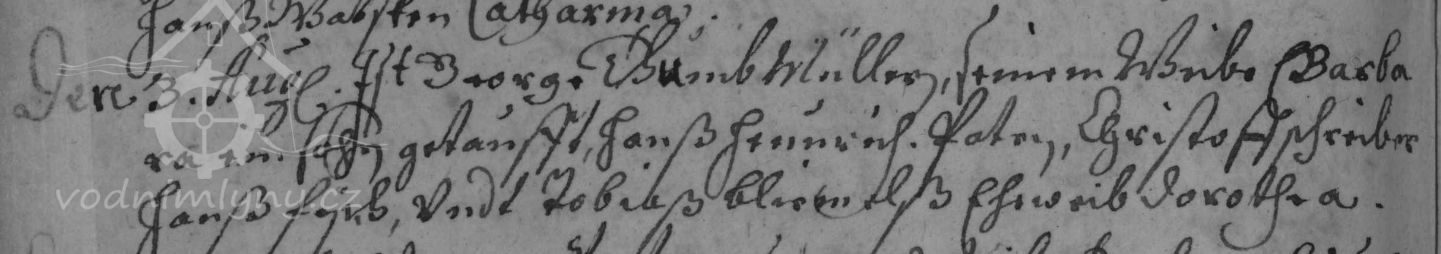 Hanß Wabsten Catharina.
Den 3. Aug. Ist George Bumb Müllern, seinem Weibe Barba
ra ein sohn getaufft, Hanß Heinrich. Paten, Christoff schreiber
Hanß, Vndt Tobiaß bliemelß Eheweib Dorothea.
vodnimlyny.cz